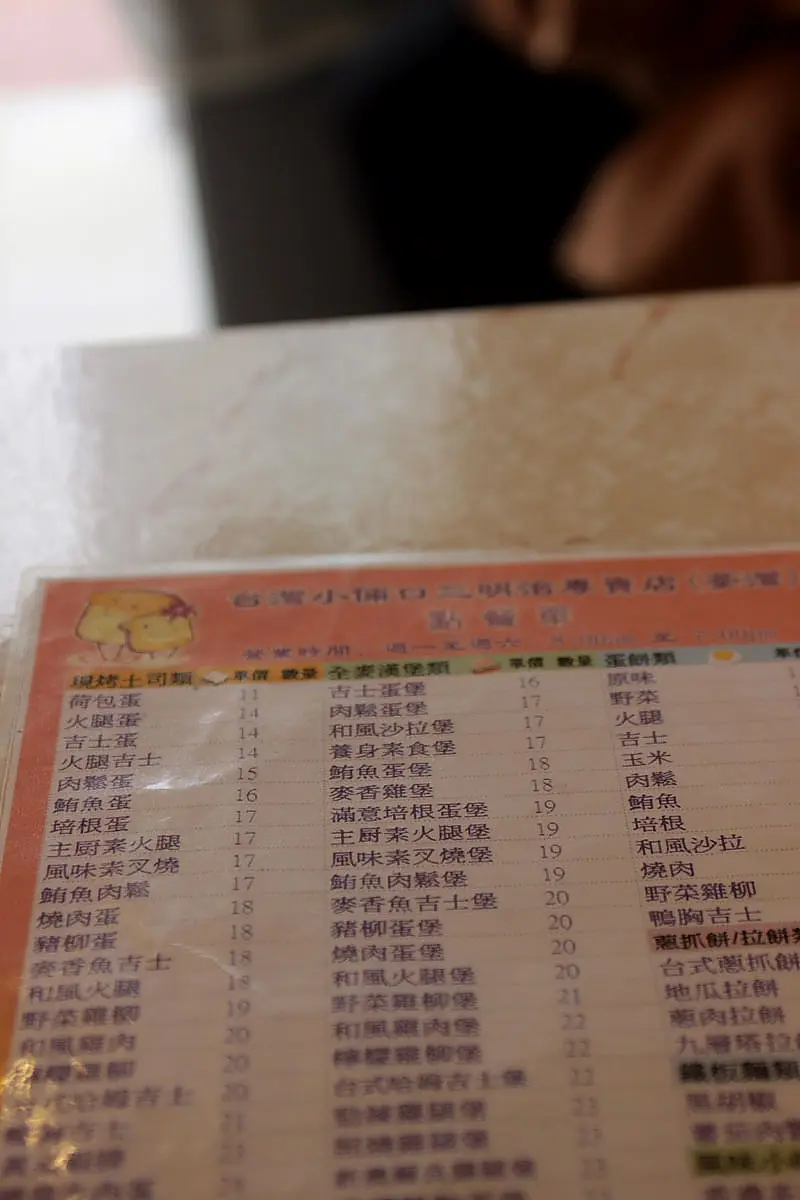 台灣小倆口三明治專賣店
點餐單
營業時間 週一至週六
現烤土司類 單價 數量 全麥漢堡類 單價 數量 蛋餅類
荷包蛋 11 吉士蛋堡 16 原味
火腿蛋 14 肉鬆蛋堡 17 野菜
吉士蛋 14 和風沙拉堡 17 火腿
火腿吉士 14 養身素食堡 17 吉士
肉鬆蛋 15 鮪魚蛋堡 18 玉米
鮪魚蛋 16 麥香雞堡 18 肉鬆
培根蛋 17 滿意培根蛋堡 19 鮪魚
主厨素火腿 17 主厨素火腿堡 19 培根
風味素叉燒 17 風味素叉燒堡 19 和風沙拉
鮪魚肉鬆 17 鮪魚肉鬆堡 19 燒肉
燒肉蛋 18 麥香魚吉士堡 20 野菜雞柳
豬柳蛋 18 豬柳蛋堡 20 鴨胸吉士
麥香魚吉士 18 燒肉蛋堡 20 蔥抓餅/拉餅
和風火腿 18 和風火腿堡 20 台式蔥抓餅
野菜雞柳 19 野菜雞柳堡 21 地瓜拉餅
和風雞肉 20 和風雞肉堡 22 蔥肉拉餅
20 檸檬雞柳堡 22 九層塔拉
20 台式哈姆吉士堡 22 鐵板麵類
21 23 黑胡椒
23 23 蕃茄肉醬